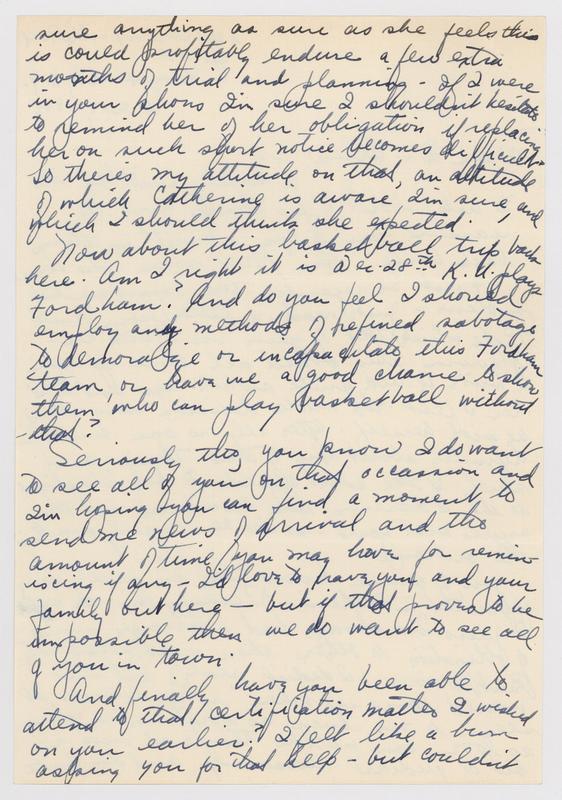 sure anything as sure as she feels this
is could profitably endure a few extra
months of trial and planning - If I were
in your shoes I'm sure I shouldn't hesitate
to remind her of her obligation if replacing
her on such short notice becomes difficult -
So there's my attitude on that, an attitude
of which Catherine is aware I'm sure, and
which I should think she expected.
Now about this basketball trip back
here. Am I right it is Dec. 28th K.U. plays
Fordham? And do you feel I should
employ any methods of refined sabotage
to demoralize or incapacitate this Fordham
team or have we a good chance to show
them who can play basketball without
that?
Seriously tho, you know I do want
to see all of you on that occassion and
I'm hoping you can find a moment to
send me news of arrival and the
amount of time you may have for remin-
iscing if any - I'd love to have you and your
family out here - but if that proves to be
impossible then we do want to see all
of you in town.
And finally have you been able to
attend to that certification matter I wished
on you earlier? I felt like a bum
asking you for that help - but couldn't